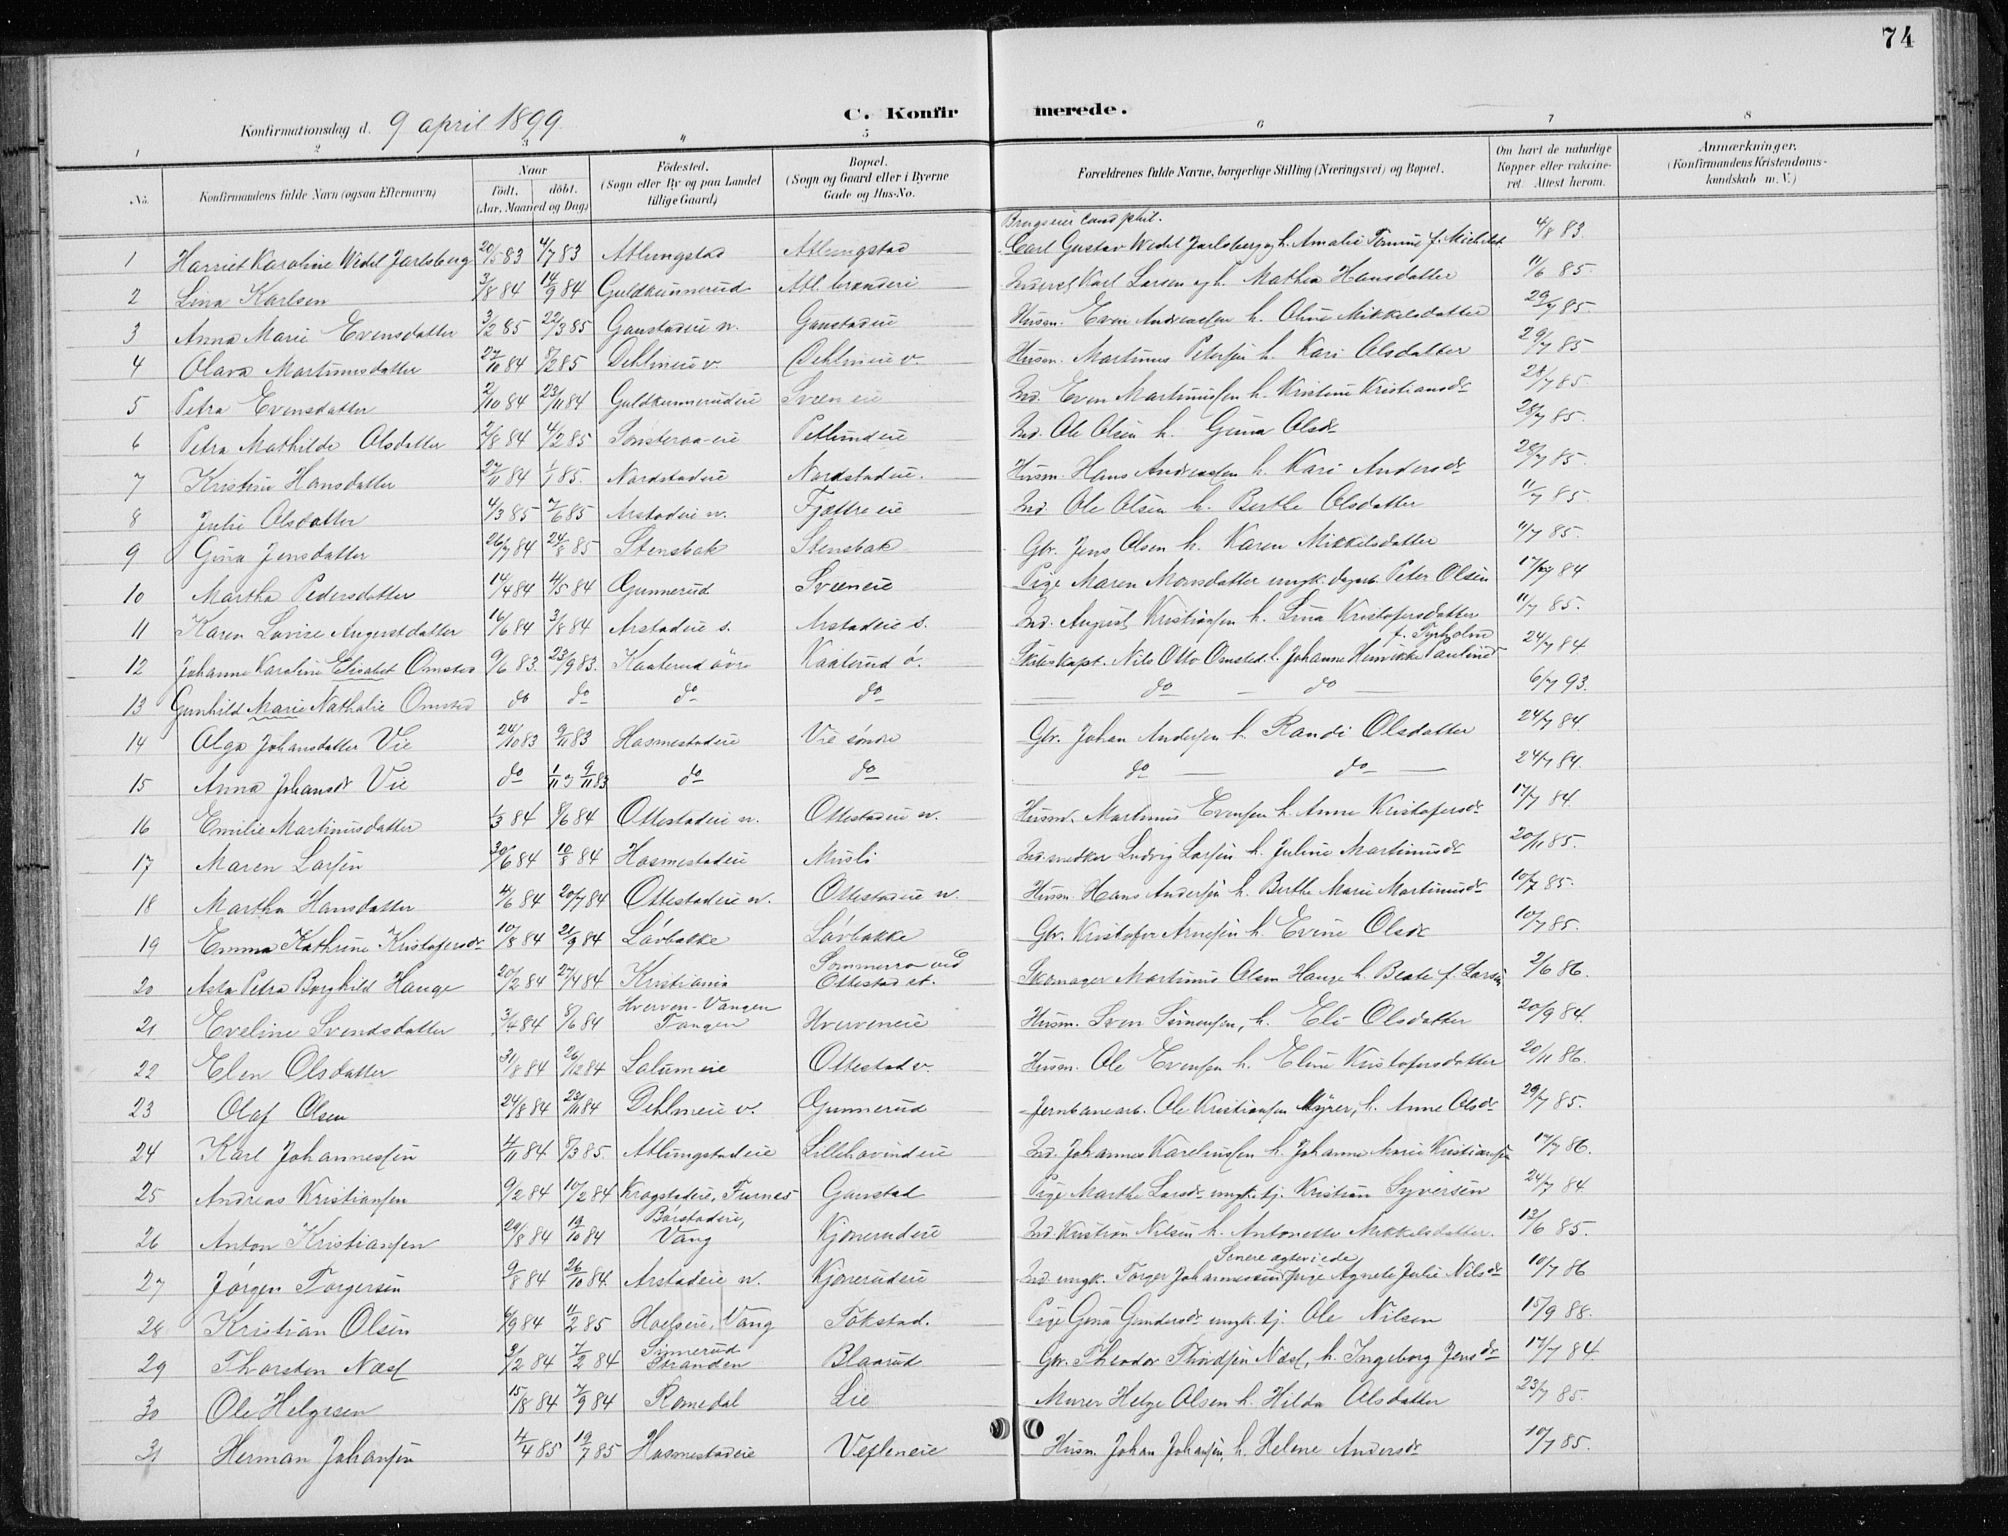 74
C. Konfirmerede.
Konfirmationsdag d. 9 april 1899.
1 2 3 4 5 6 7 8
No. Konfirmandens fulde Navn (ogsaa Efternavn) Naar födt. döbt. (Aar, Maaned og Dag) Födested. (Sogn eller By og paa Landet tillige Gaard) Bopæl. (Sogn og Gaard eller i Byerne Gade og Hus-No. Forældrenes fulde Navne, borgerlige Stilling (Næringsvei) og Bopæl. Om havt de naturlige Kopper eller vakcineret. Attest herom. Anmærkninger. (Konfirmandens Kristendomskundskab m. V.)
Brugseier Cand phil.
1 Harriet Karoline Wedel Jarlsberg 20/5 83 4/7 83 Atlungstad Atlungstad Carl Gustav Wedel Jarlsberg og h. Amalie f. Michelet 4/8 83
2 Lina Karlsen 3/8 84 14/9 84 Guldkunnerud Atl. brænderi Inderst Karl Larsen og h. Mathea Hansdatter 11/6 85.
3 Anna Marie Evensdatter 3/2 85 22/3 85 Gaustadeie n. Gaustadeie Husm. Even Andreassen h. Oline Mikkelsdatter 29/7 85.
4 Olava Martinusdatter 27/10 84 8/2 85 Dehlineie v. Dehlineie v. Husm. Martinus Petersen h. Kari Olsdatter 29/7 85
5 Petra Evensdatter 2/10 84 23/11 84 Guldkunnerudeie Sveen eie Ind. Even Martinussen h. Kristine Kristiansdr 28/7 85.
6 Petra Mathilde Olsdatter 2/8 84 4/2 85 Sonsteraa-eie Petlundeie Ind. Ole Olsen h. Guna Olsdr 28/7 85.
7 Kristine Hansdatter 27/11 84 1/1 85. Nordstadeie Nordstadeie. Husm. Hans Andreassen h. Kari Andersdr 28/7 85.
8 Julie Olsdatter 4/3 85 7/6 85 Arstadeie n. Fjættre eie Ind. Ole Olsen h. Berthe Olsdatter 11/7 85.
9 Gina Jensdatter 26/7 84 24/8 85 Stensbak Stensbak Gbr. Jens Olsen h. Karen Mikkelsdatter 11/7 85.
10 Martha Pedersdatter 14/4 84 4/5 84 Gunnerud Sveeneie Pige Maren Monsdatter ungk. dagarb. Peter Olsen 17/7 84
11 Karen Lovise Augustdatter 16/6 84 3/8 84 Arstadeie s. Arstadeie s. Ind. August Kristiansen h. Lina Kristofersdatter 11/7 85.
12 Johanne Karoline Elisabet Omsted 9/6 83. 23/9 83. Kaaterud övre Kaaterud ö. Skibskapt. Nils Otto Omsted. h. Johanne Henrikke Pauline f. Tyrholm 24/7 84
13 Gunhild Marie Nathalie Omsted do do do do do do 6/7 93.
14 Olga Johansdatter Vie 24/10 83 9/11 83 Hosmestadeie Vie söndre Gbr. Johan Andersen h. Randi Olsdatter 24/7 84.
15 Anna Johansdr Vie do 1/11 9/11 83 do do do do 24/7 84.
16 Emilie Martinusdatter 1/3 84 8/6 84 Ottestadeie n. Ottestadeie n. Husmd. Martinus Evensen h. Anne Kristofersdr 17/7 84.
17 Maren Larsen 30/6 84 10/8 84 Hosmestadeie Musli Ind. snedker Ludvig Larsen h. Juline Martinusdr 20/11 85.
18 Martha Hansdatter 4/6 84 20/7 84 Ottestadeie n. Ottestadeie n. Husm. Hans Andersen h. Berthe Marie Martinusdr 10/7 85.
19 Emma Kathrine Kristofersdr 10/8 84 21/9 84 Lövbakke Lövbakke Gbr. Kristofer Arnesen h. Evine Olsdr 10/7 85.
20 Asta Petra Borghild Hauge 20/2 84 27/4 84 Kristiania Sommerro ved Ottestad st. Skomager Martinus Olsen Hauge h. Beate f. Larsen 2/6 86.
21 Eveline Svendsdatter 3/4 84 8/6 84 Hverven-Vangen Tangen Hverveneie Husm. Sven Simensen, h. Eli Olsdatter 20/9 84.
22 Elen Olsdatter 31/8 84 26/12 84 Salumeie Ottestad v. Husm. Ole Evensen h. Eline Kristofersdatter 20/11 86.
23 Olaf Olsen 24/8 84 23/11 84 Dehlineie v. Gunnerud Jernbanearb. Ole Kristiansen Myrer, h. Anne Olsdr 29/7 85.
24 Karl Johannessen 4/11 84 8/3 85. Atlungstadeie Lillehovindeie Ind. Johannes Karelinssen h. Johanne Marie Kristiansen 17/7 86.
25 Andreas Kristiansen 9/2 84 10/2 84 Krogstadeie, Furnes Gaustad Pige Marthe Larsdr ungk. tj. Kristian Syversen 24/7 84
26 Anton Kristiansen 29/8 84 19/10 84 Börstadeie, Vang Kjonerudeie Ind. Kristian Nilsen h. Antonette Mikkelsdatter. 13/6 85.
27 Jörgen Torgersen 9/8 84 26/10 84. Arstadeie n. Kjonerudeie Ind. ungk. Torger Johannessen Pige Agnete Julie Nilsdr Senere ægteviede 10/7 86
28 Kristian Olsen 6/9 84 1/2 85 Hoelseie, Vang Tokstad. Pige Gina Gundersdr ungk. tj. Ole Nilsen 15/9 88.
29 Thorsten Næss 3/2 84 7/2 84 Sinnerud Stranden Blaarud Gbr. Theodor Thordsen Næss, h. Ingeborg Jensdr 17/7 84.
30 Ole Helgesen 15/8 84 7/9 84 Romedal Lie Murer Helge Olsen h. Hilda Olsdatter 23/7 85.
31 Herman Johansen 4/4 85 19/7 85 Hosmestadeie Vefleneie Husm. Johan Johansen, h. Helene Andersdr 10/7 85.